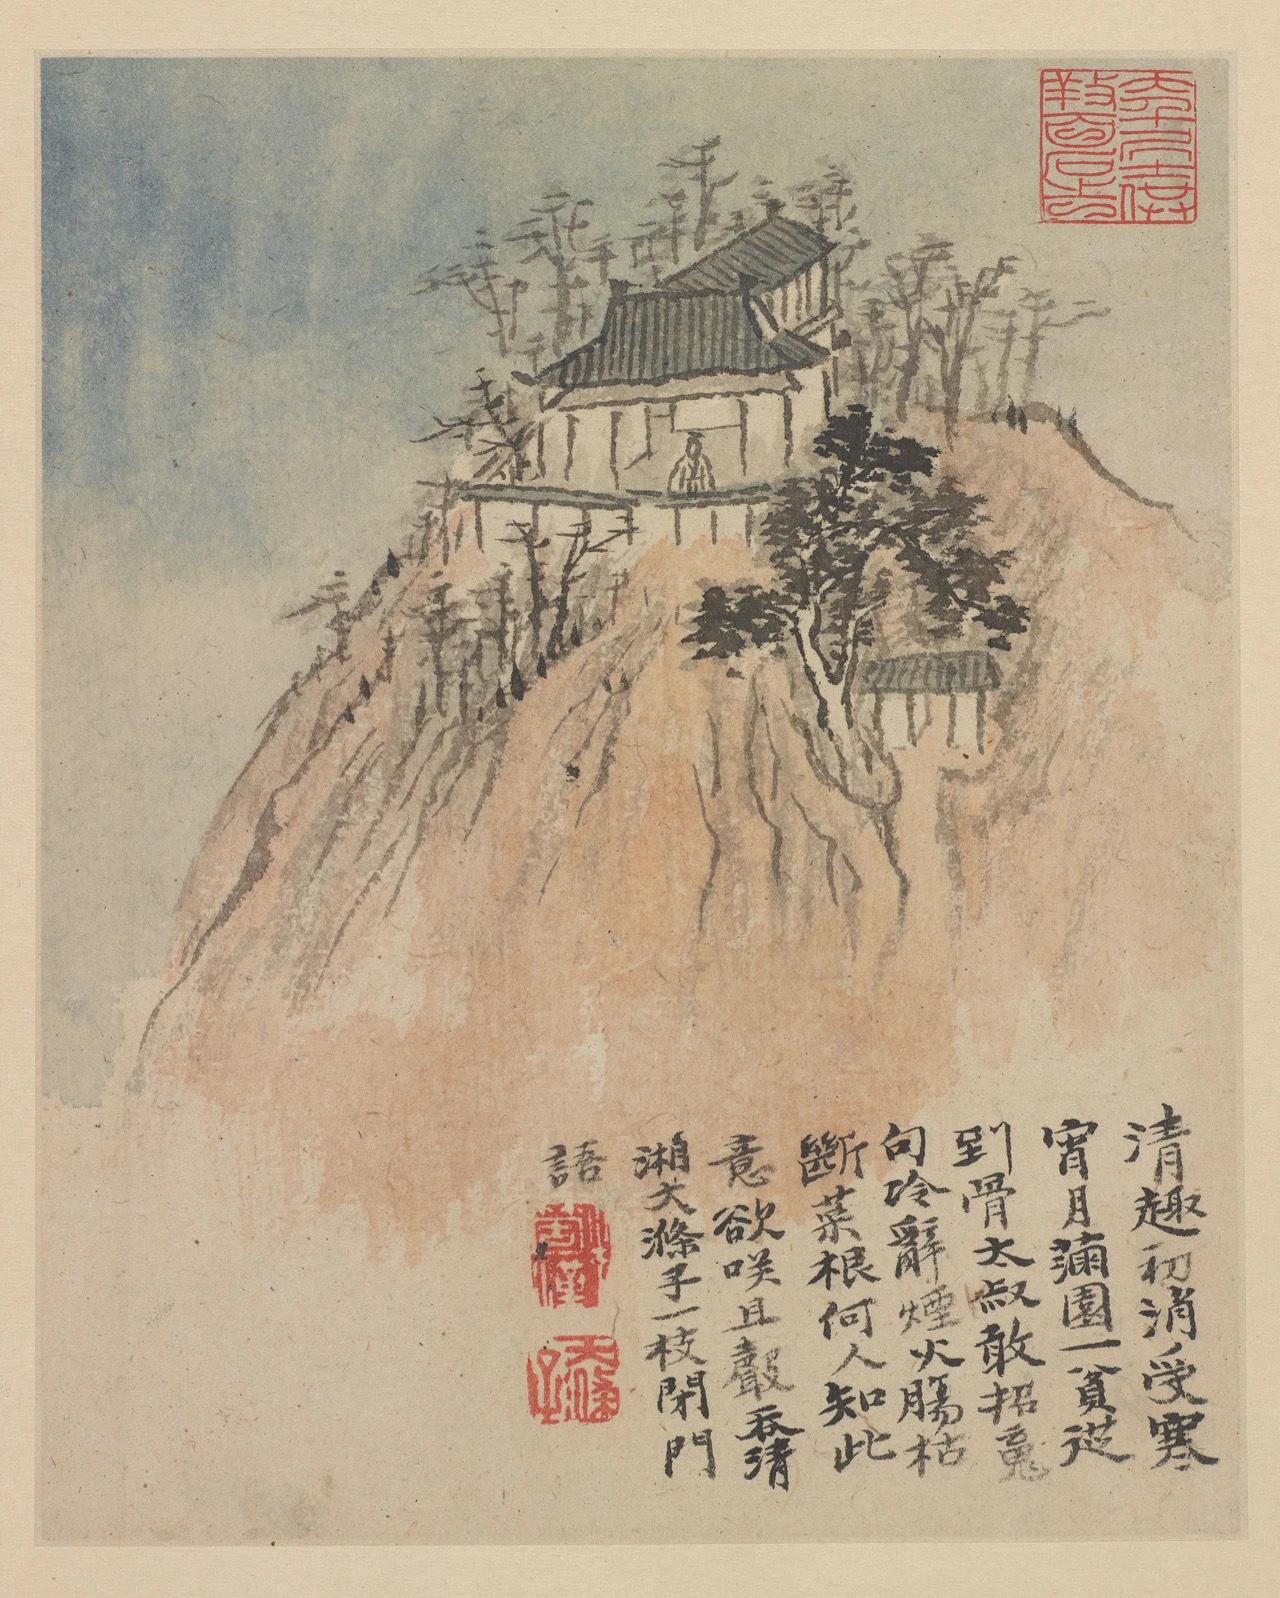 清趣初消受寒
宵月滿園一貧從
到骨太叔敢招寃
句冷辭煙火腸枯
斷菜根何人知此
意欲咲且聲吞清
湘大滌子一枝閉門
語